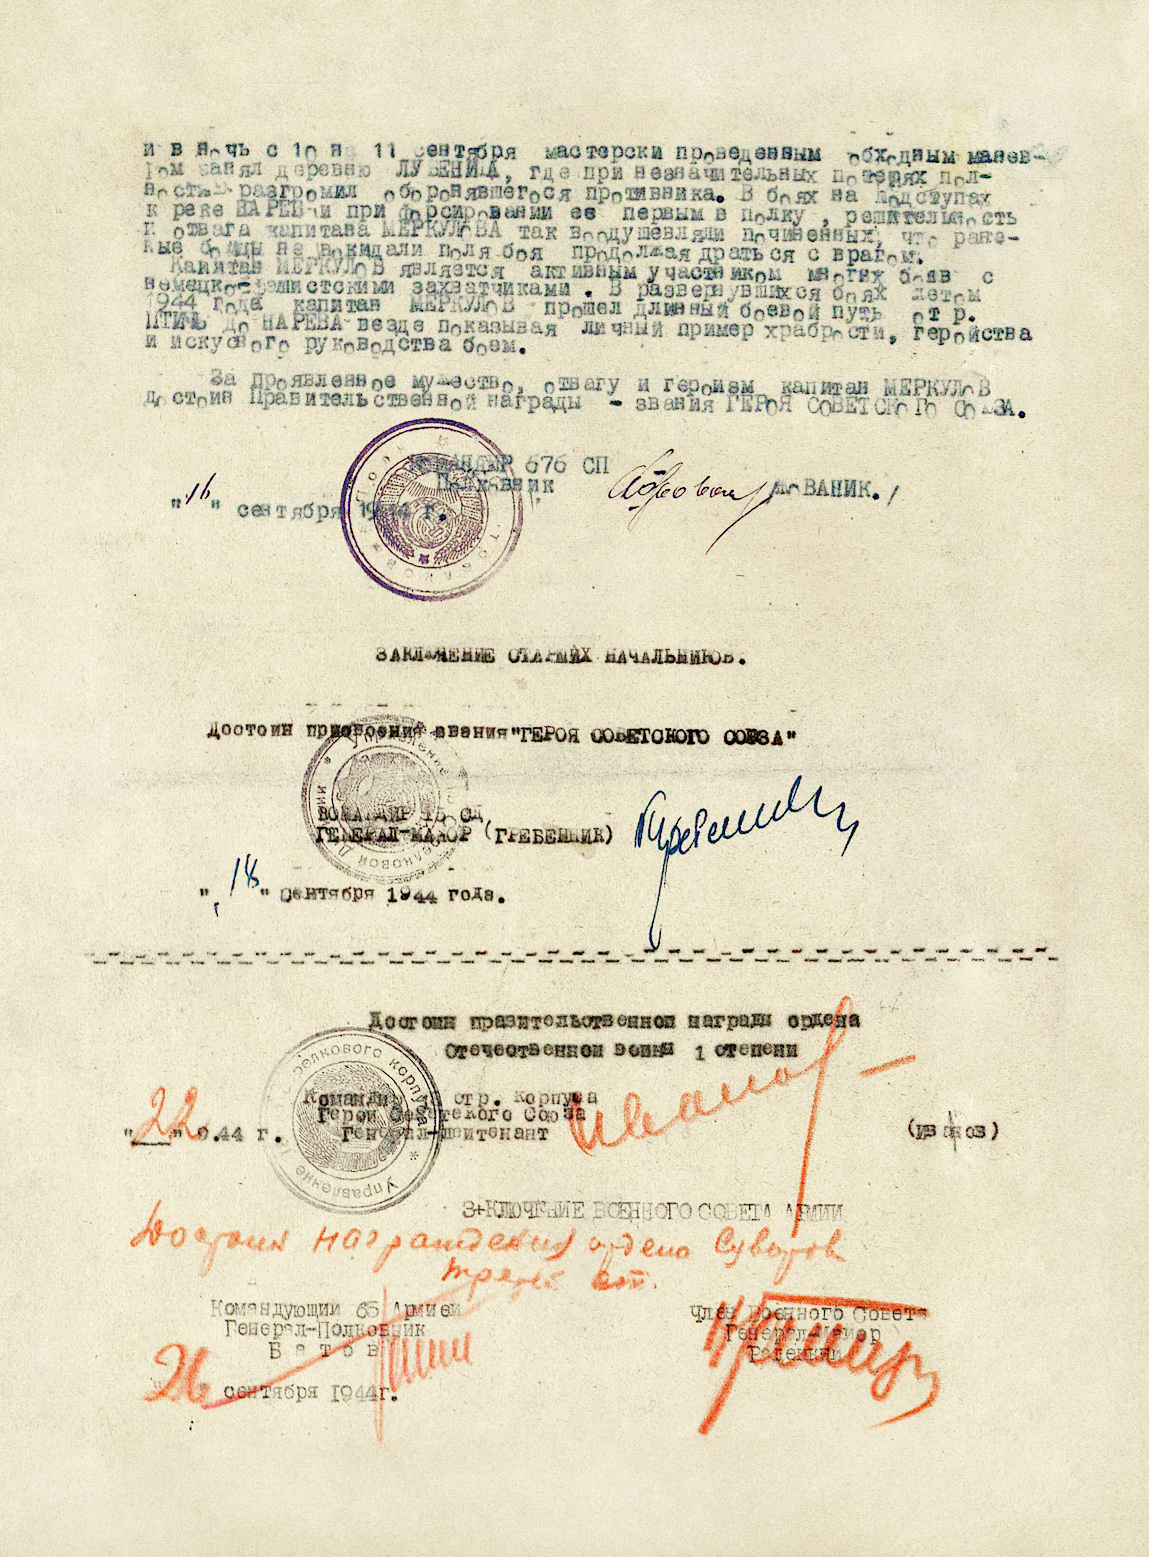 и в ночь с 10 на 11 сентября мастерски проведенным обходным манев-
ром занял деревню ЛУБЕНИЦА, где при незначительных потерях пол-
ностью разгромил оборонявшегося противника. В боях на подступах
к реке НАРЕВ и при форсировании ее первым в полку, решительность
и отвага капитана МЕРКУЛОВА так воодушевляли подчиненных, что ране-
ные бойцы не покидали поля боя продолжая драться с врагом.
Капитан МЕРКУЛОВ является активным участником многих боев с
немецко-фашистскими захватчиками. В развернувшихся боях летом
1944 года капитан МЕРКУЛОВ прошел длинный боевой путь от р.
ПТИЧЬ до НАРЕВА везде показывая личный пример храбрости, геройства
и искусного руководства боем.
За проявленное мужество, отвагу и героизм капитан МЕРКУЛОВ
достоин Правительственной награды - звания ГЕРОЯ СОВЕТСКОГО СОЮЗА.
КОМАНДИР 676 СП
Полковник
"16" сентября 1944 г.
ЗАКЛЮЧЕНИЕ СТАРШИХ НАЧАЛЬНИКОВ.
Достоин присвоения звания "ГЕРОЯ СОВЕТСКОГО СОЮЗА"
КОМАНДИР 15 СД
ГЕНЕРАЛ-МАЙОР (ГРЕБЕННИК)
"18" сентября 1944 года.
Достоин правительственной награды ордена
Отечественной войны 1 степени
Командир стр. корпуса
Герой Советского Союза
"22" 9.44 г. Генерал-лейтенант (Иванов)
Иванов
ЗАКЛЮЧЕНИЕ ВОЕННОГО СОВЕТА АРМИИ
Достоин награждения ордено Суворов
трети ст.
Командующий 65 Армией
Генерал-Полковник
Батов
Член Военного Совета
Генерал-Майор
Радецкий
26 сентября 1944г.